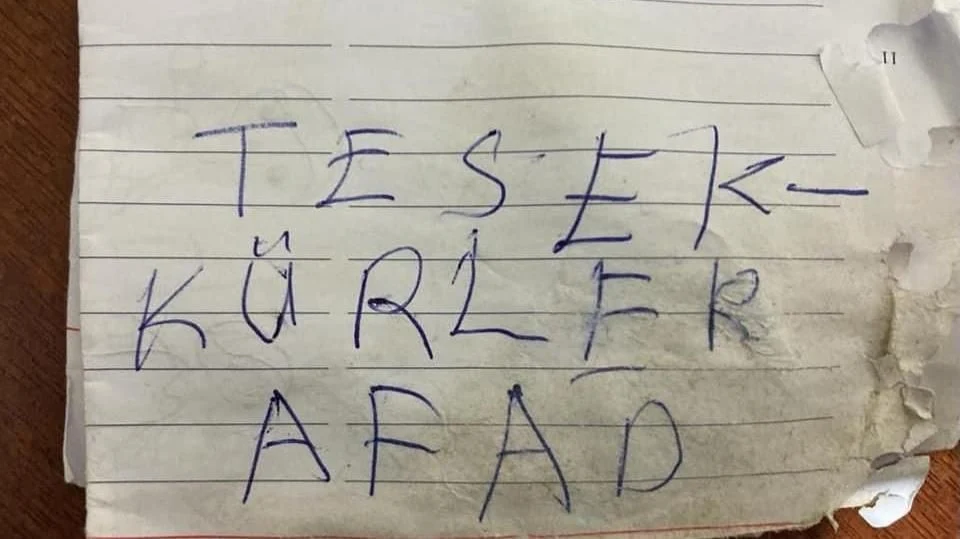 II
TESEK-
KÜRLER
AFAD